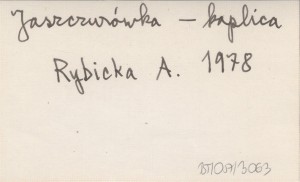 Jaszczurówka – kaplica
Rybicka A. 1978
BT/OA/3063